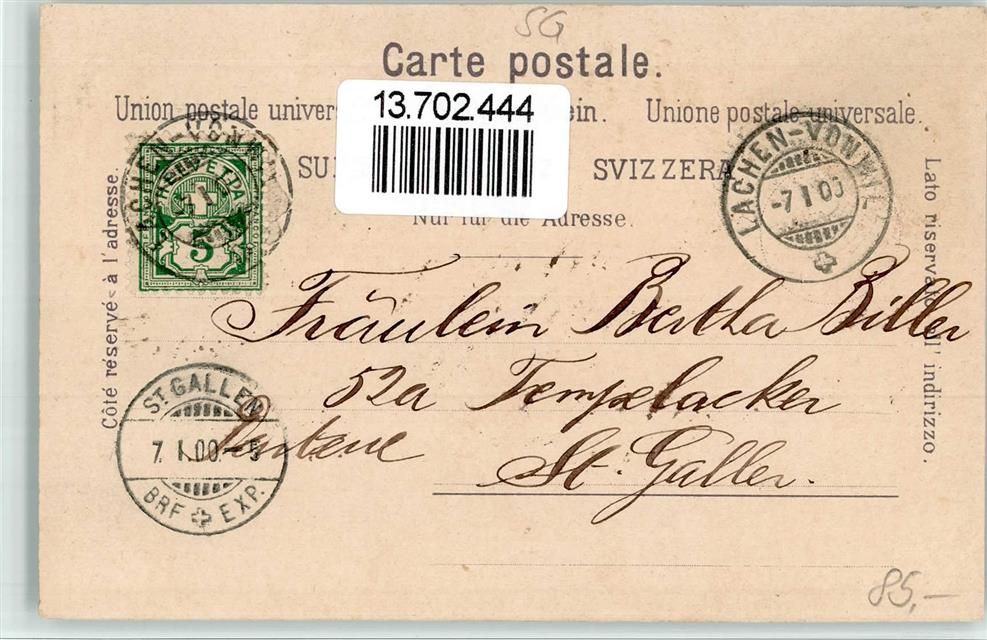 SG
Carte postale.
13.702.444
Union postale univers ein. Unione postale universale.
SU SVIZZERA
Nur für die Adresse.
Côté réservé à l'adresse.
Lato riservato all' indirizzo.
HELVETIA
FRANCO
5
LACHEN-VONWIL
-7 I 00
Fräulein Bertha Biller
52a Tempelacker
St. Gallen.
ST GALLEN
7. I. 00. 5
BRF EXP.
85,-